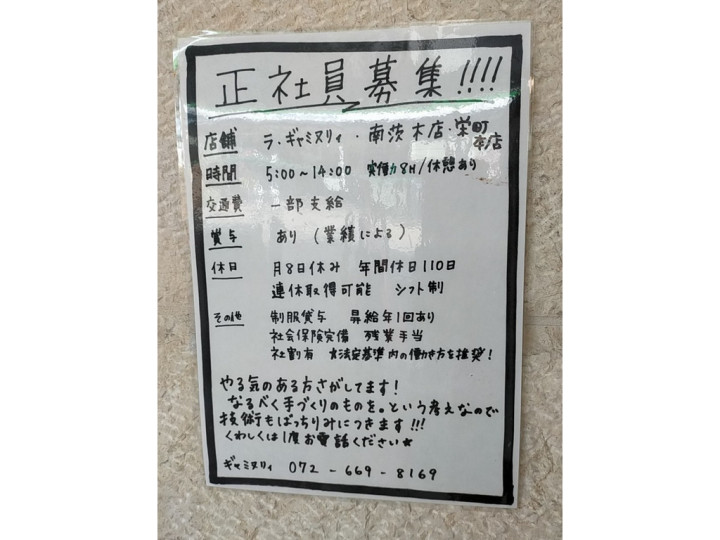 正社員募集!!!!
店舗 ラ・ギャミヌリィ・南茨木店・栄町本店
時間 5:00～14:00 実働8H/休憩あり
交通費 一部支給
賞与 あり (業績による)
休日 月8日休み 年間休日110日
連休取得可能 シフト制
その他 制服貸与 昇給年1回あり
社会保険完備 残業手当
社割有 ☆法定基準内の働き方を推奨!
やる気のある方さがしてます!
なるべく手づくりのものを。という考えなので
技術もばっちりみにつきます!!!
くわしくは1度お電話ください★
ギャミヌリィ 072-669-8169